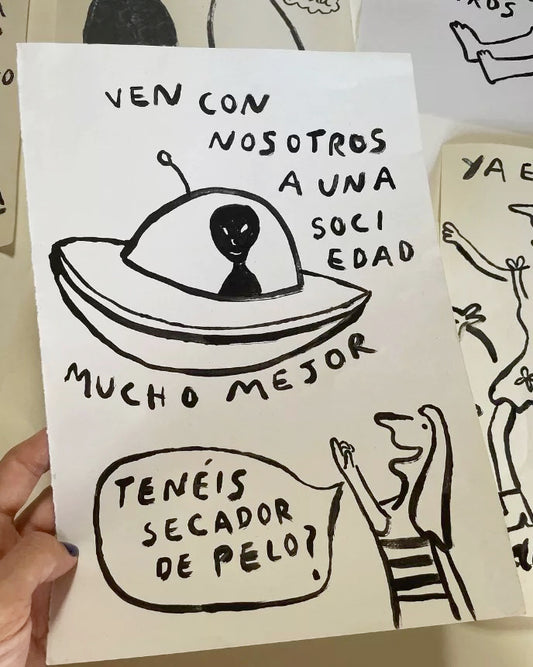 VEN CON
NOSOTROS
A UNA
SOCI
EDAD
MUCHO MEJOR
TENÉIS
SECADOR
DE PELO?
YA E